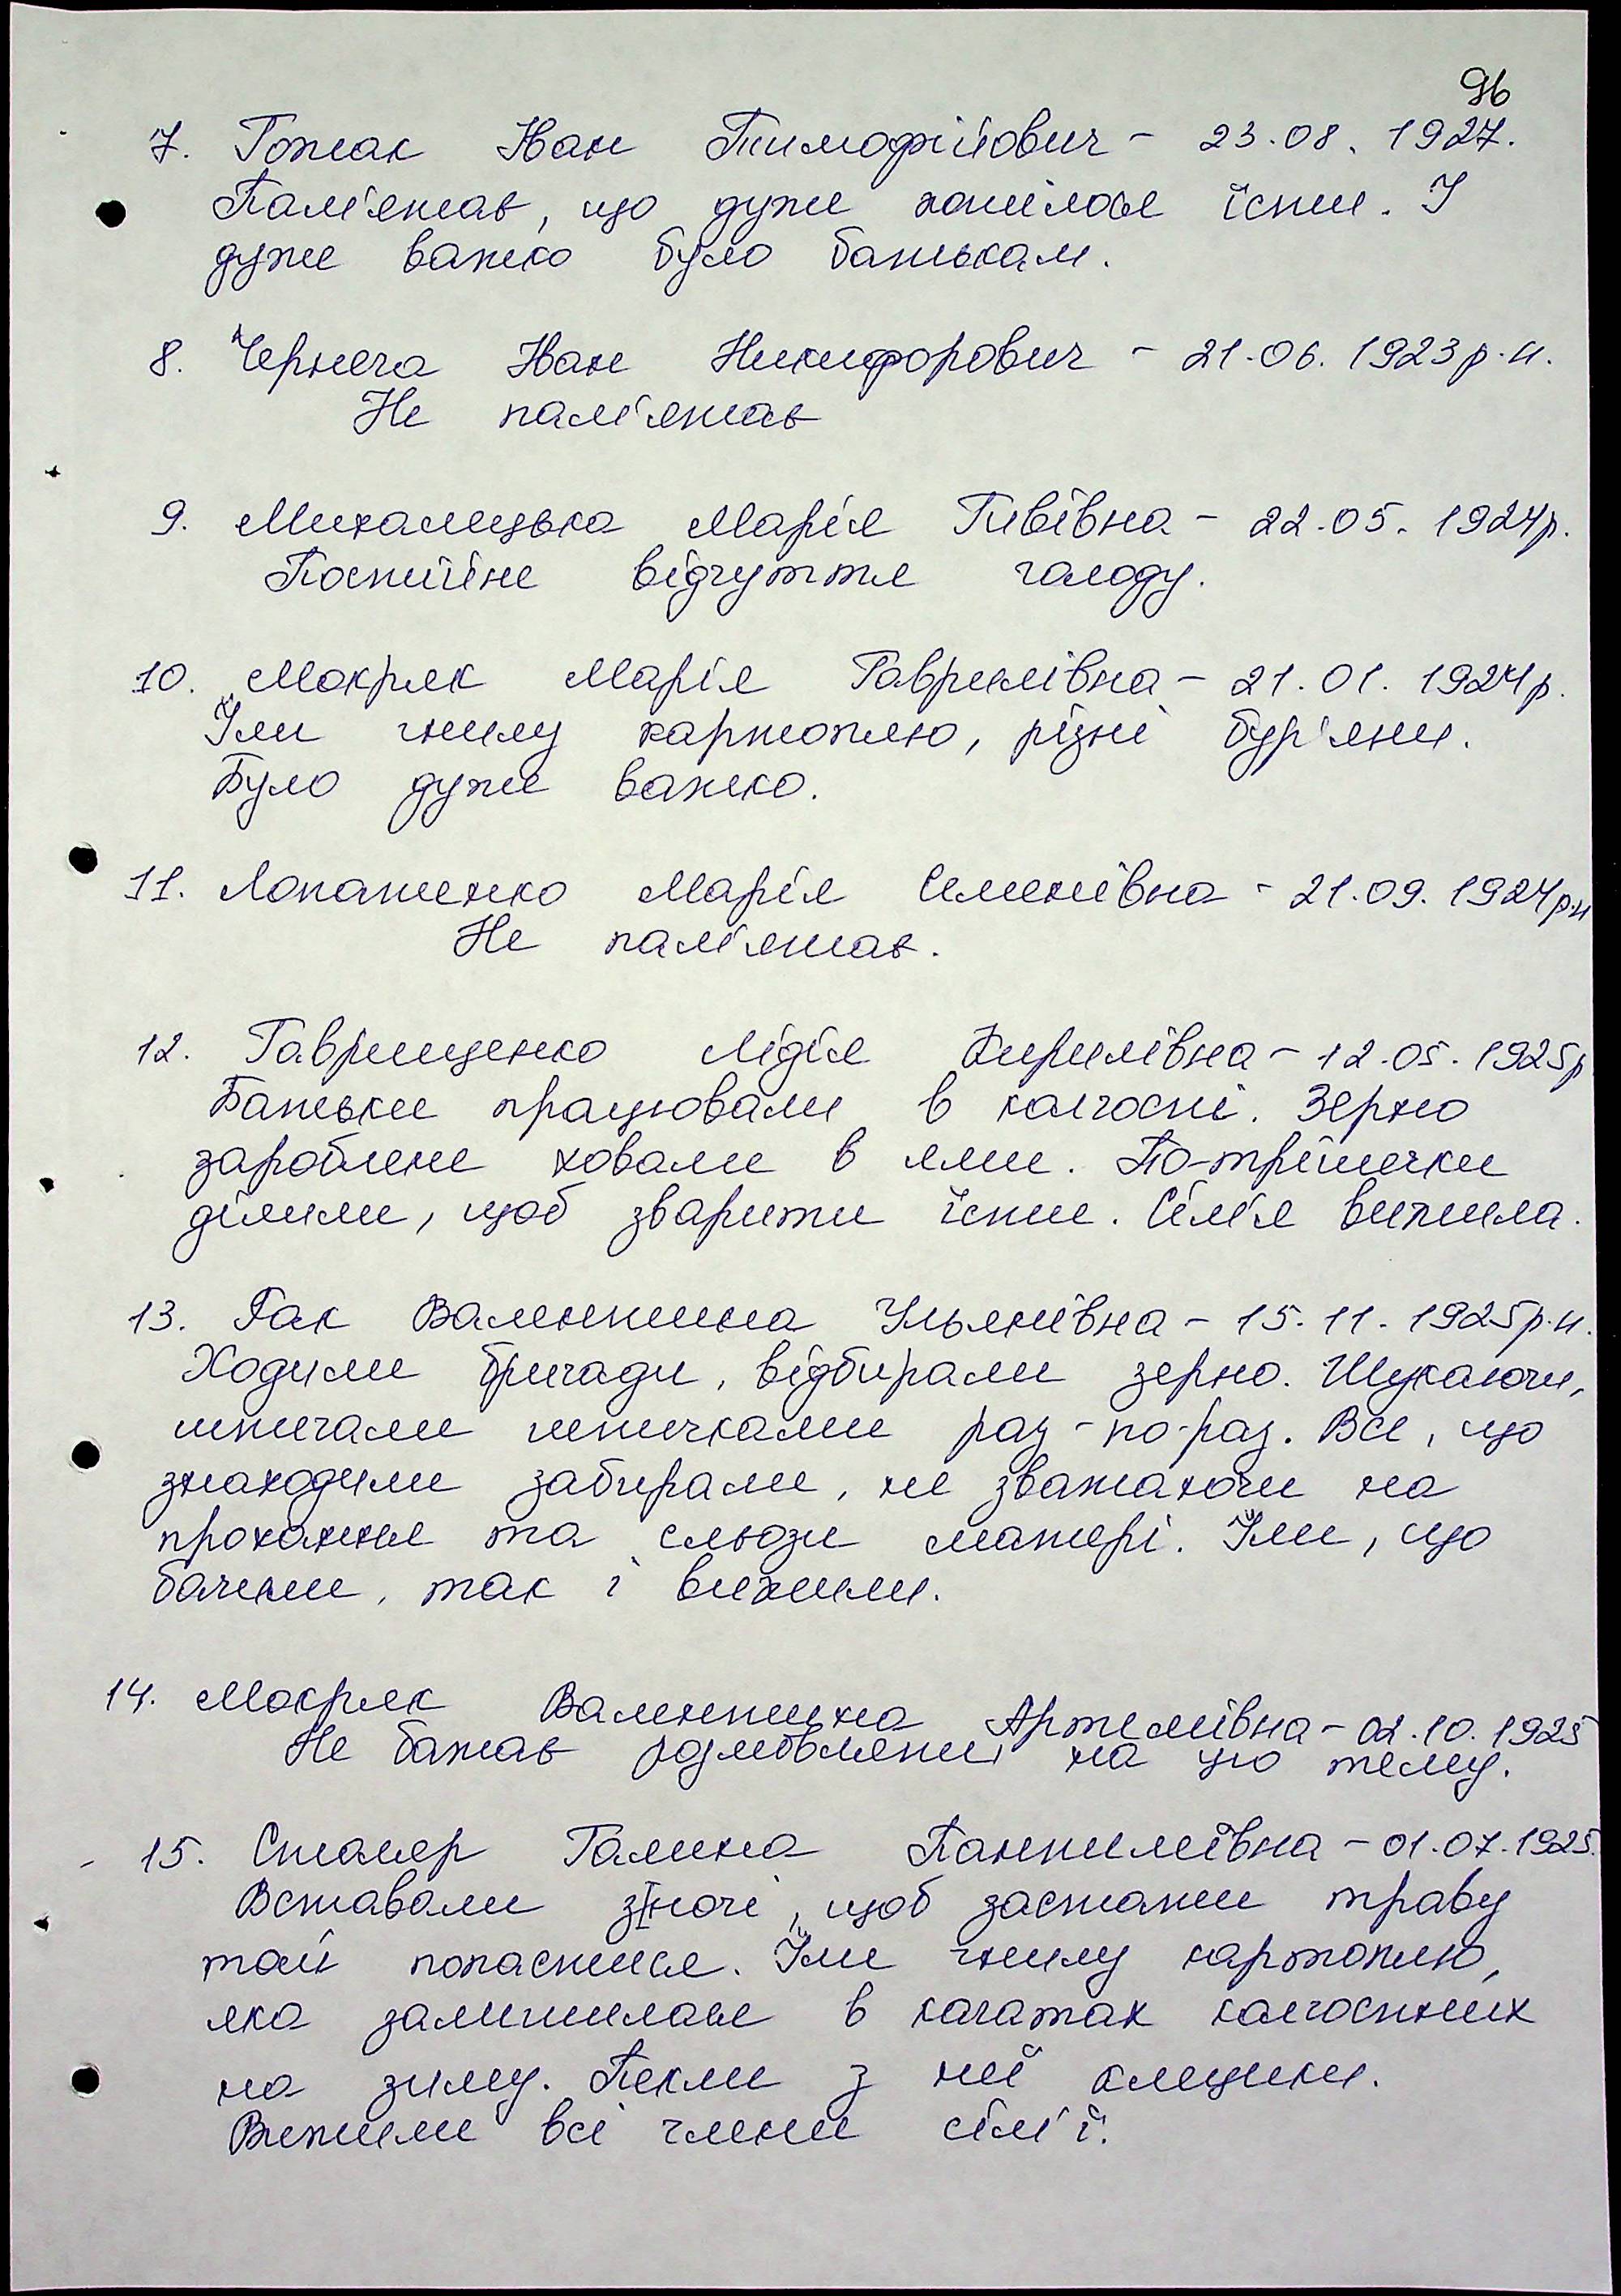 96
7. Гожак Іван Тимофійович - 23.08.1927.
Пам'ятав, що дуже хотілося їсти. І
дуже важко було батькам.
8. Чернега Іван Никифорович - 21.06.1923 р.н.
Не пам'ятав
9. Михалицька Марія Гивівна - 22.05.1924р.
Постійне відчуття голоду.
10. Мокряк Марія Гаврилівна - 21.01.1924р.
Їли гнилу картоплю, різні бур'яни.
Було дуже важко.
11. Лопатенко Марія Семенівна - 21.09.1924р.н
Не пам'ятав.
12. Гаврищенко Лідія Кирилівна - 12.05.1925р
Батьки працювали в колгоспі. Зерно
зароблене ховали в ями. По-трішечки
ділили, щоб зварити їсти. Сім'я вижила.
13. Гак Валентина Ульянівна - 15.11.1925р.н.
Ходили бригади, відбирали зерно. Шукаючи,
шпигали шпичками раз-по-раз. Все, що
знаходили забирали, не зважаючи на
прохання та сльози матері. Їли, що
бачили, так і вижили.
14. Мокряк Валентина Артемівна - 02.10.1925
Не бажав розмовляти на цю тему.
15. Столяр Галина Пантилеївна - 01.07.1925.
Вставали зночі, щоб застати траву
тай попастися. Їли гнилу картоплю,
яка залишилася в кагатах колгоспних
на зиму. Пекли з неї олешики.
Вижили всі члени сім'ї.